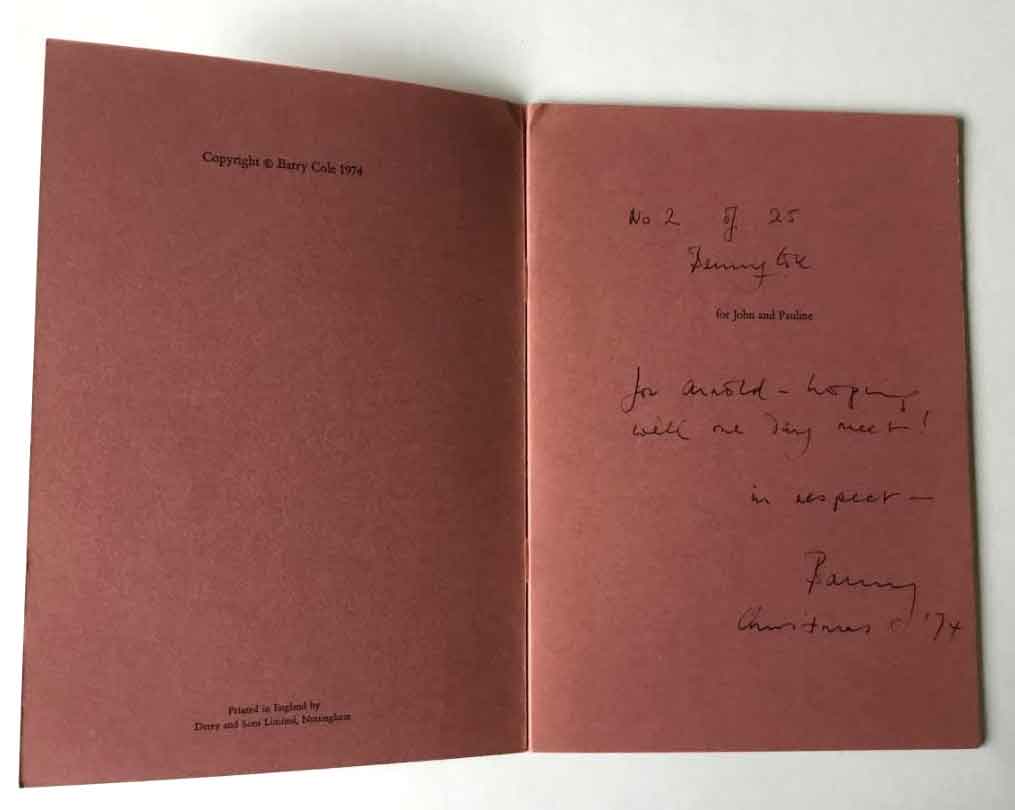 Copyright © Barry Cole 1974
Printed in England by
Derry and Sons Limited, Nottingham
No 2 of 25
Barry Cole
for John and Pauline
for Arnold – hoping
we'll one day meet!
in respect –
Barry
Christmas '74